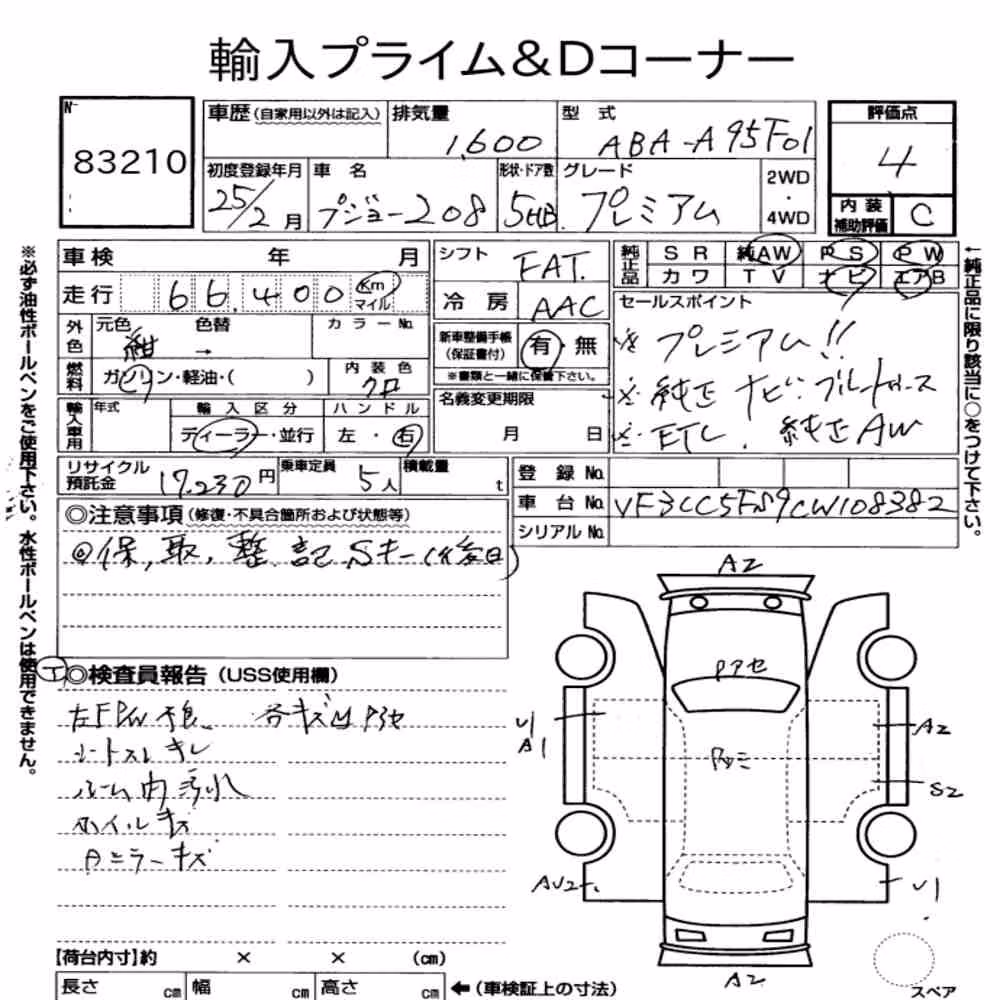 輸入プライム&Dコーナー
No 83210
車歴 (自家用以外は記入) 排気量 1,600 型式 ABA-A95F01
評価点 4
初度登録年月 25/2月 車名 プジョー208 形状・ドア数 5HB グレード プレミアム 2WD・4WD
内装補助評価 C
車検 年 月
走行 66,400 Km マイル
シフト FAT.
冷房 AAC
純正品 SR 純AW PS PW
カワ TV ナビ エアB
外色 元色 紺 色替 → カラーNo.
新車整備手帳 (保証書付) 有・無
※書類と一緒に保管下さい。
セールスポイント
※プレミアム!!
※純正ナビ・ブルートゥース
※ETC! 純正AW
燃料 ガソリン・軽油・( ) 内装色 クロ
輸入車用 年式 輸入区分 ディーラー・並行 ハンドル 左・右
名義変更期限 月 日
リサイクル預託金 17,230円 乗車定員 5人 積載量 t
登録No.
車台No. VF3CC5FS9CW108382
シリアルNo.
◎注意事項 (修復・不具合箇所および状態等)
◎保,取,整,記,Sキー(後日)
◎検査員報告 (USS使用欄)
左FPW 各キズ凹アセ
シートスレキレ
ルーム内汚れ
ホイルキズ
Aミラーキズ
A2
アセ
U1
A1
A2
S2
AU2
U1
A2
スペア
【荷台内寸】約 × × (cm)
長さ cm 幅 cm 高さ cm ←(車検証上の寸法)
※必ず油性ボールペンをご使用下さい。水性ボールペンは使用できません。
←純正品に限り該当に○をつけて下さい。